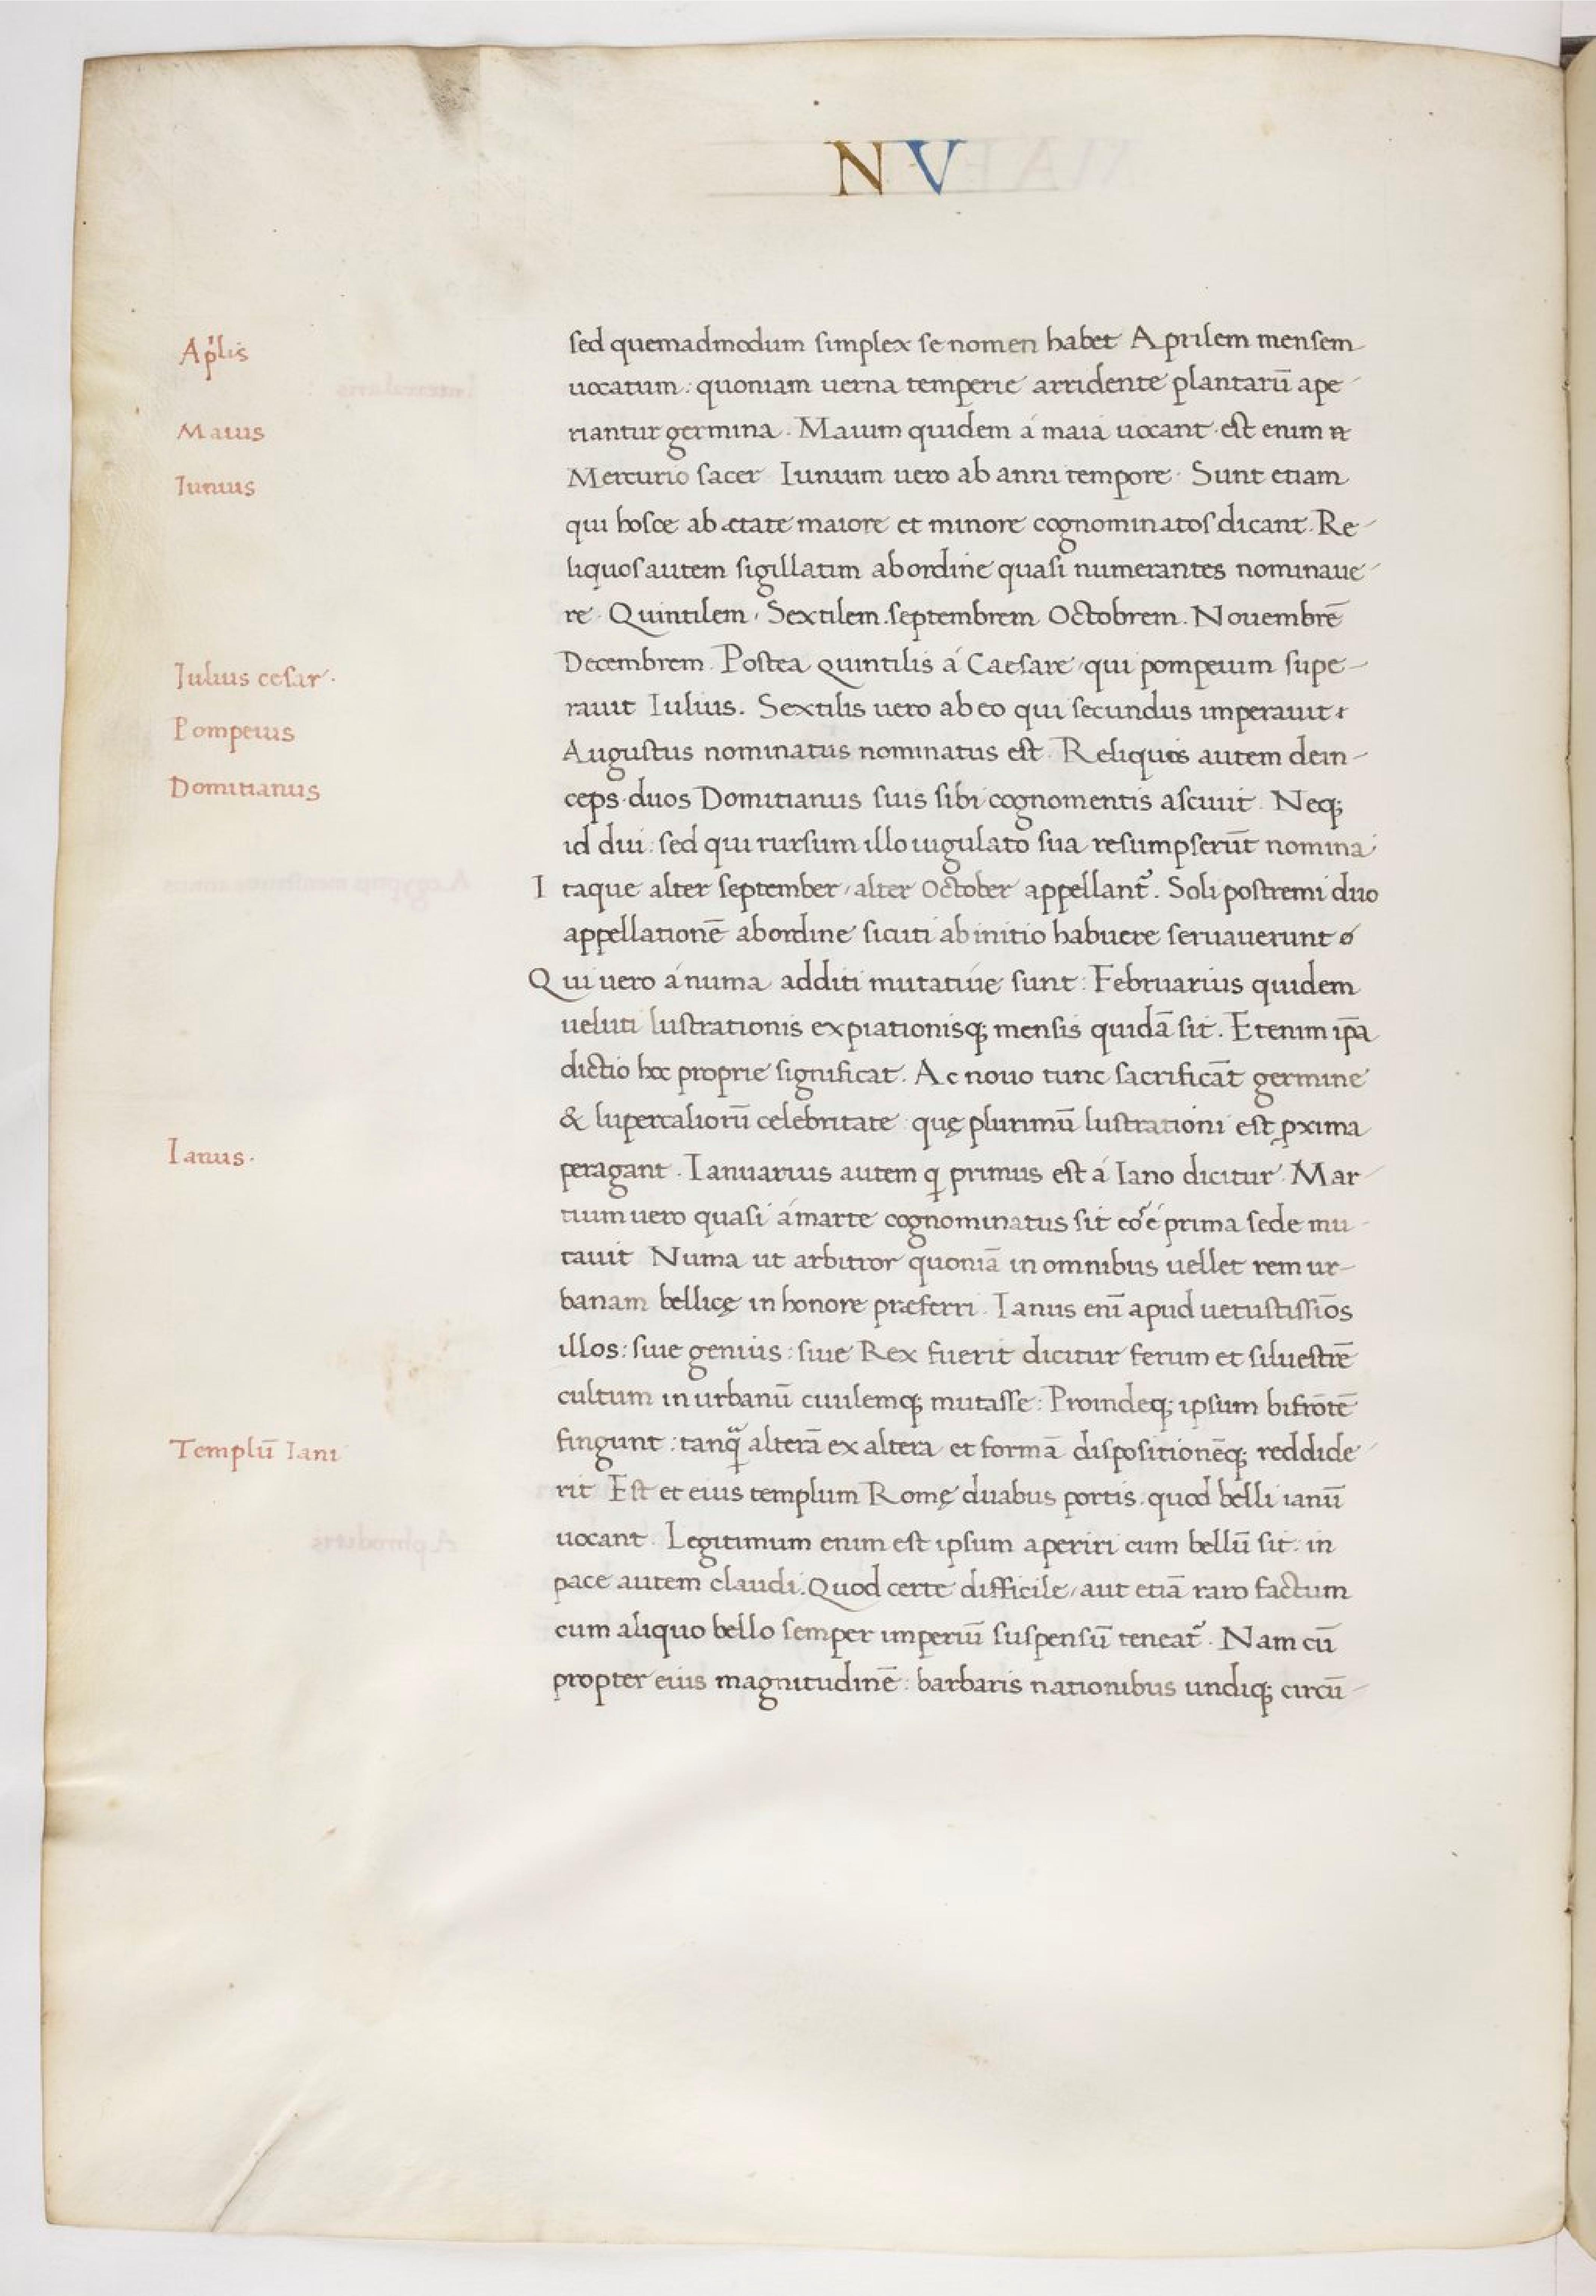 NV
Aṗlis
sed quemadmodum simplex se nomen habet Aprilem mensem
uocatum: quoniam uerna temperie arridente plantarū ape-
Maius
riantur germina. Maium quidem á maia uocant. est enim
Iunius
Mercurio sacer Iunium uero ab anni tempore. Sunt etiam
qui hosce ab ætate maiore et minore cognominatos dicant. Re-
liquos autem sigillatim ab ordine quasi numerantes nominaue-
re. Quintilem. Sextilem. septembrem Octobrem. Nouembrē
Iulius cesar.
Decembrem. Postea quintilis á Caesare, qui pompeium supe-
Pompeius
rauit Iulius. Sextilis uero ab eo qui secundus imperauit
Augustus nominatus nominatus est. Reliquos autem dein-
Domitianus
ceps. duos Domitianus suis sibi cognomentis asciuit. Neq;
id diu: sed qui rursum illo iugulato sua resumpserūt nomina
Itaque alter september, alter October appellant᷑. Soli postremi duo
appellationē ab ordine sicuti ab initio habuere seruauerunt
Qui uero á numa additi mutatiue sunt: Februarius quidem
ueluti lustrationis expiationisq; mensis quidā sit. Etenim ip̄a
dictio hoc proprie significat. Ac nouo tunc sacrificāt germine
& lupercaliorū celebritate quę plurimū lustrationi est ꝓxima
Ianus.
peragant. Ianuarius autem q primus est á Iano dicitur. Mar-
tium uero quasi á marte cognominatus sit prima sede mu-
tauit Numa ut arbitror quoniā in omnibus uellet rem ur-
banam bellicę in honore præferri. Ianus enī apud uetustissīos
illos: siue genius: siue Rex fuerit dicitur ferum et siluestrē
cultum in urbanū ciuilemq; mutasse: Proindeq; ipsum bifrōtē
Templū Iani
fingunt: tanq̈ alterā ex altera et formā dispositionēq; reddide-
rit Est et eius templum Romę duabus portis. quod belli ianū
uocant. Legitimum enim est ipsum aperiri cum bellū sit: in
pace autem claudi. Quod certe difficile, aut etiā raro factum
cum aliquo bello semper imperiū suspensū teneat᷑. Nam cū
propter eius magnitudinē: barbaris nationibus undiq; circū-